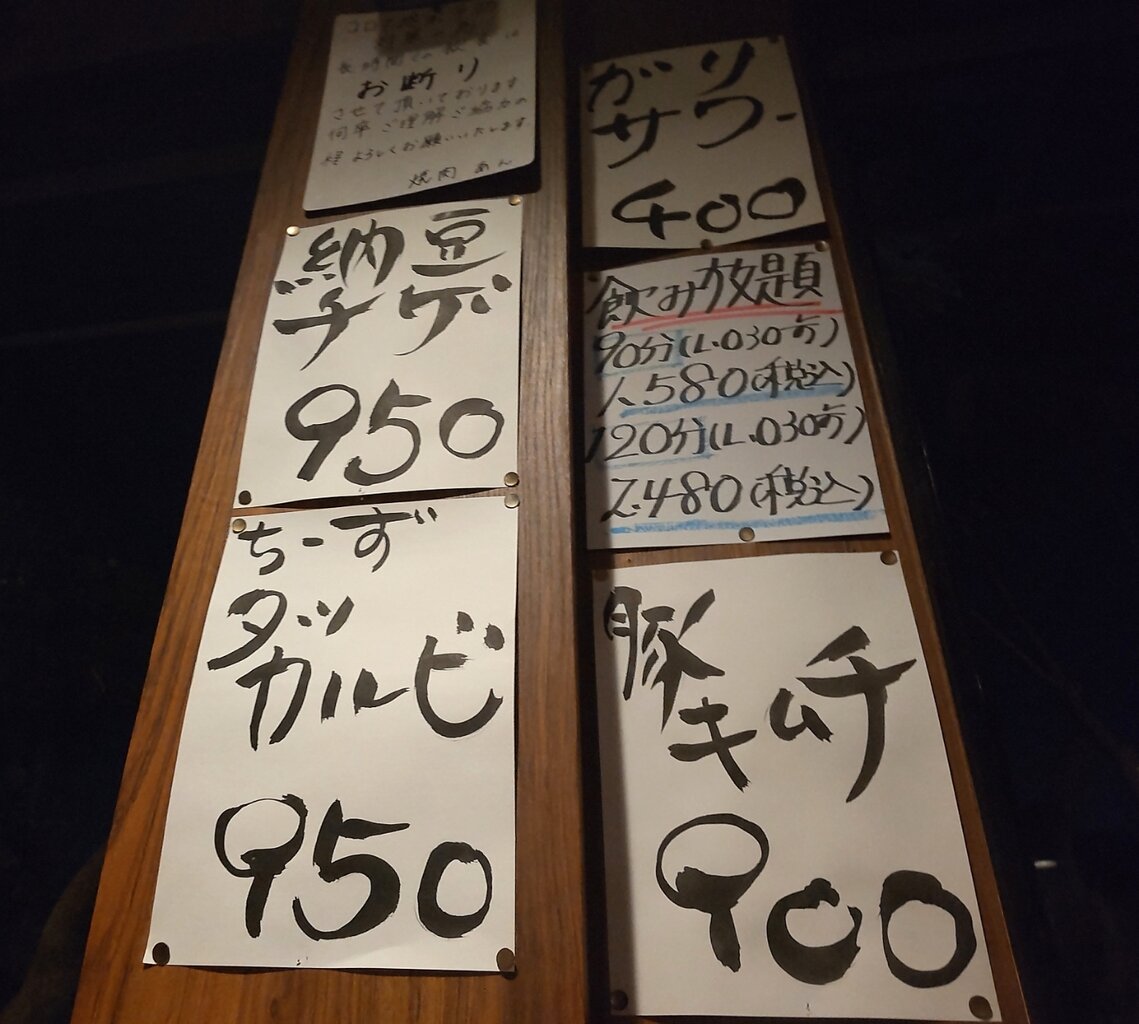 コロナ対策
長時間での飲食は
お断り
させて頂いております
何卒ご理解ご協力の
程よろしくお願いいたします。
焼肉 あん
納豆
チゲ
950
ちーず
タッ
カルビ
950
ガリ
サワー
400
飲み放題
90分(L.O30分前)
1,580(税込)
120分(L.O30分前)
2,480(税込)
豚
キムチ
900